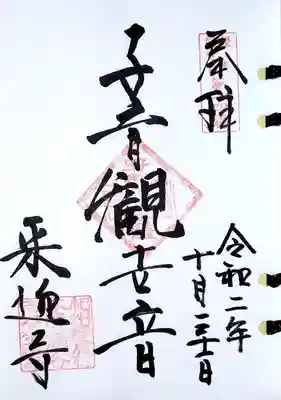 奉拝
令和二年
十月
子育観世音
来迎寺